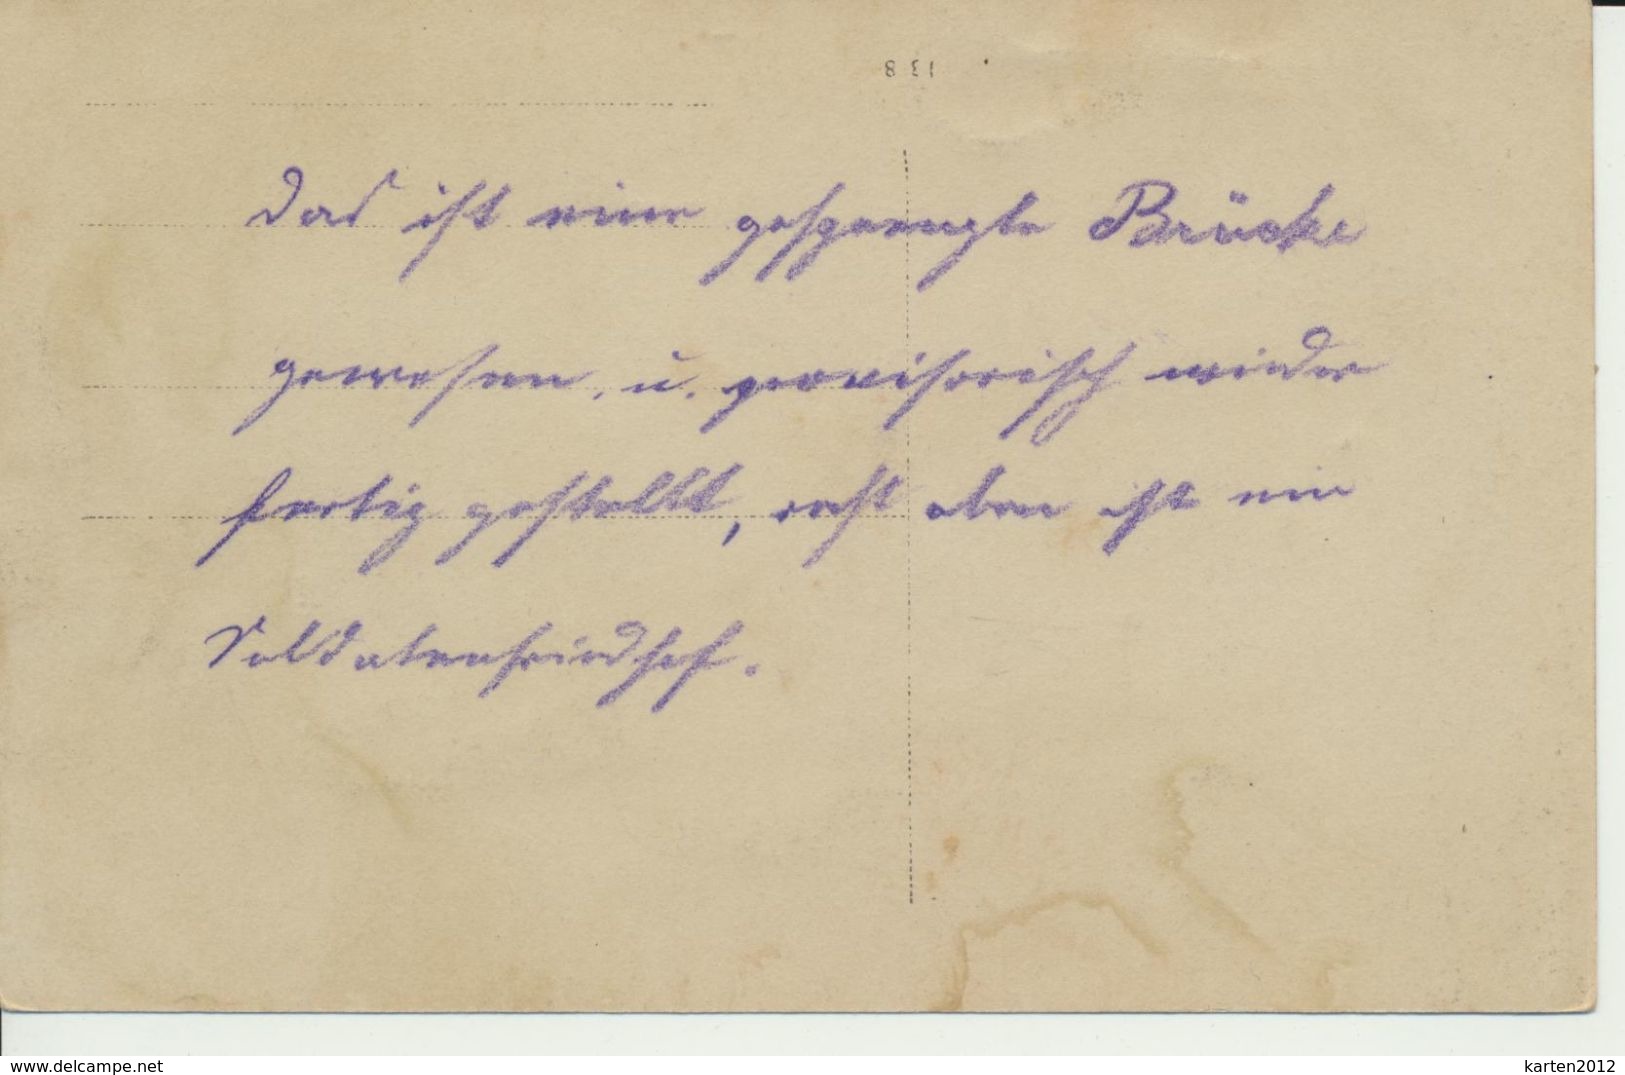 138
Das ist eine gesprengte Brücke
gewesen, u. provisorisch wieder
fertig gestellt, erst oben ist ein
Soldatenfriedhof.
www.delcampe.net
karten2012